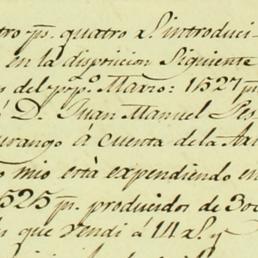 tro ps. quatro rs. introduci-
en la disposicion Siguiente
s del ppo. Marzo: 1527 ps
á D. Juan Manuel Pes
urango á cuenta de la
o mio està expendiendo en
525 ps. producidos de 300
s que vendi á 14 rs. y